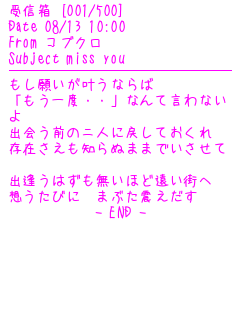 受信箱 [001/500]
Date 08/13 10:00
From コブクロ
Subject miss you
もし願いが叶うならば
「もう一度・・」なんて言わない
よ
出会う前の二人に戻しておくれ
存在さえも知らぬままでいさせて
出逢うはずも無いほど遠い街へ
想うたびに　まぶた震えだす
- END -